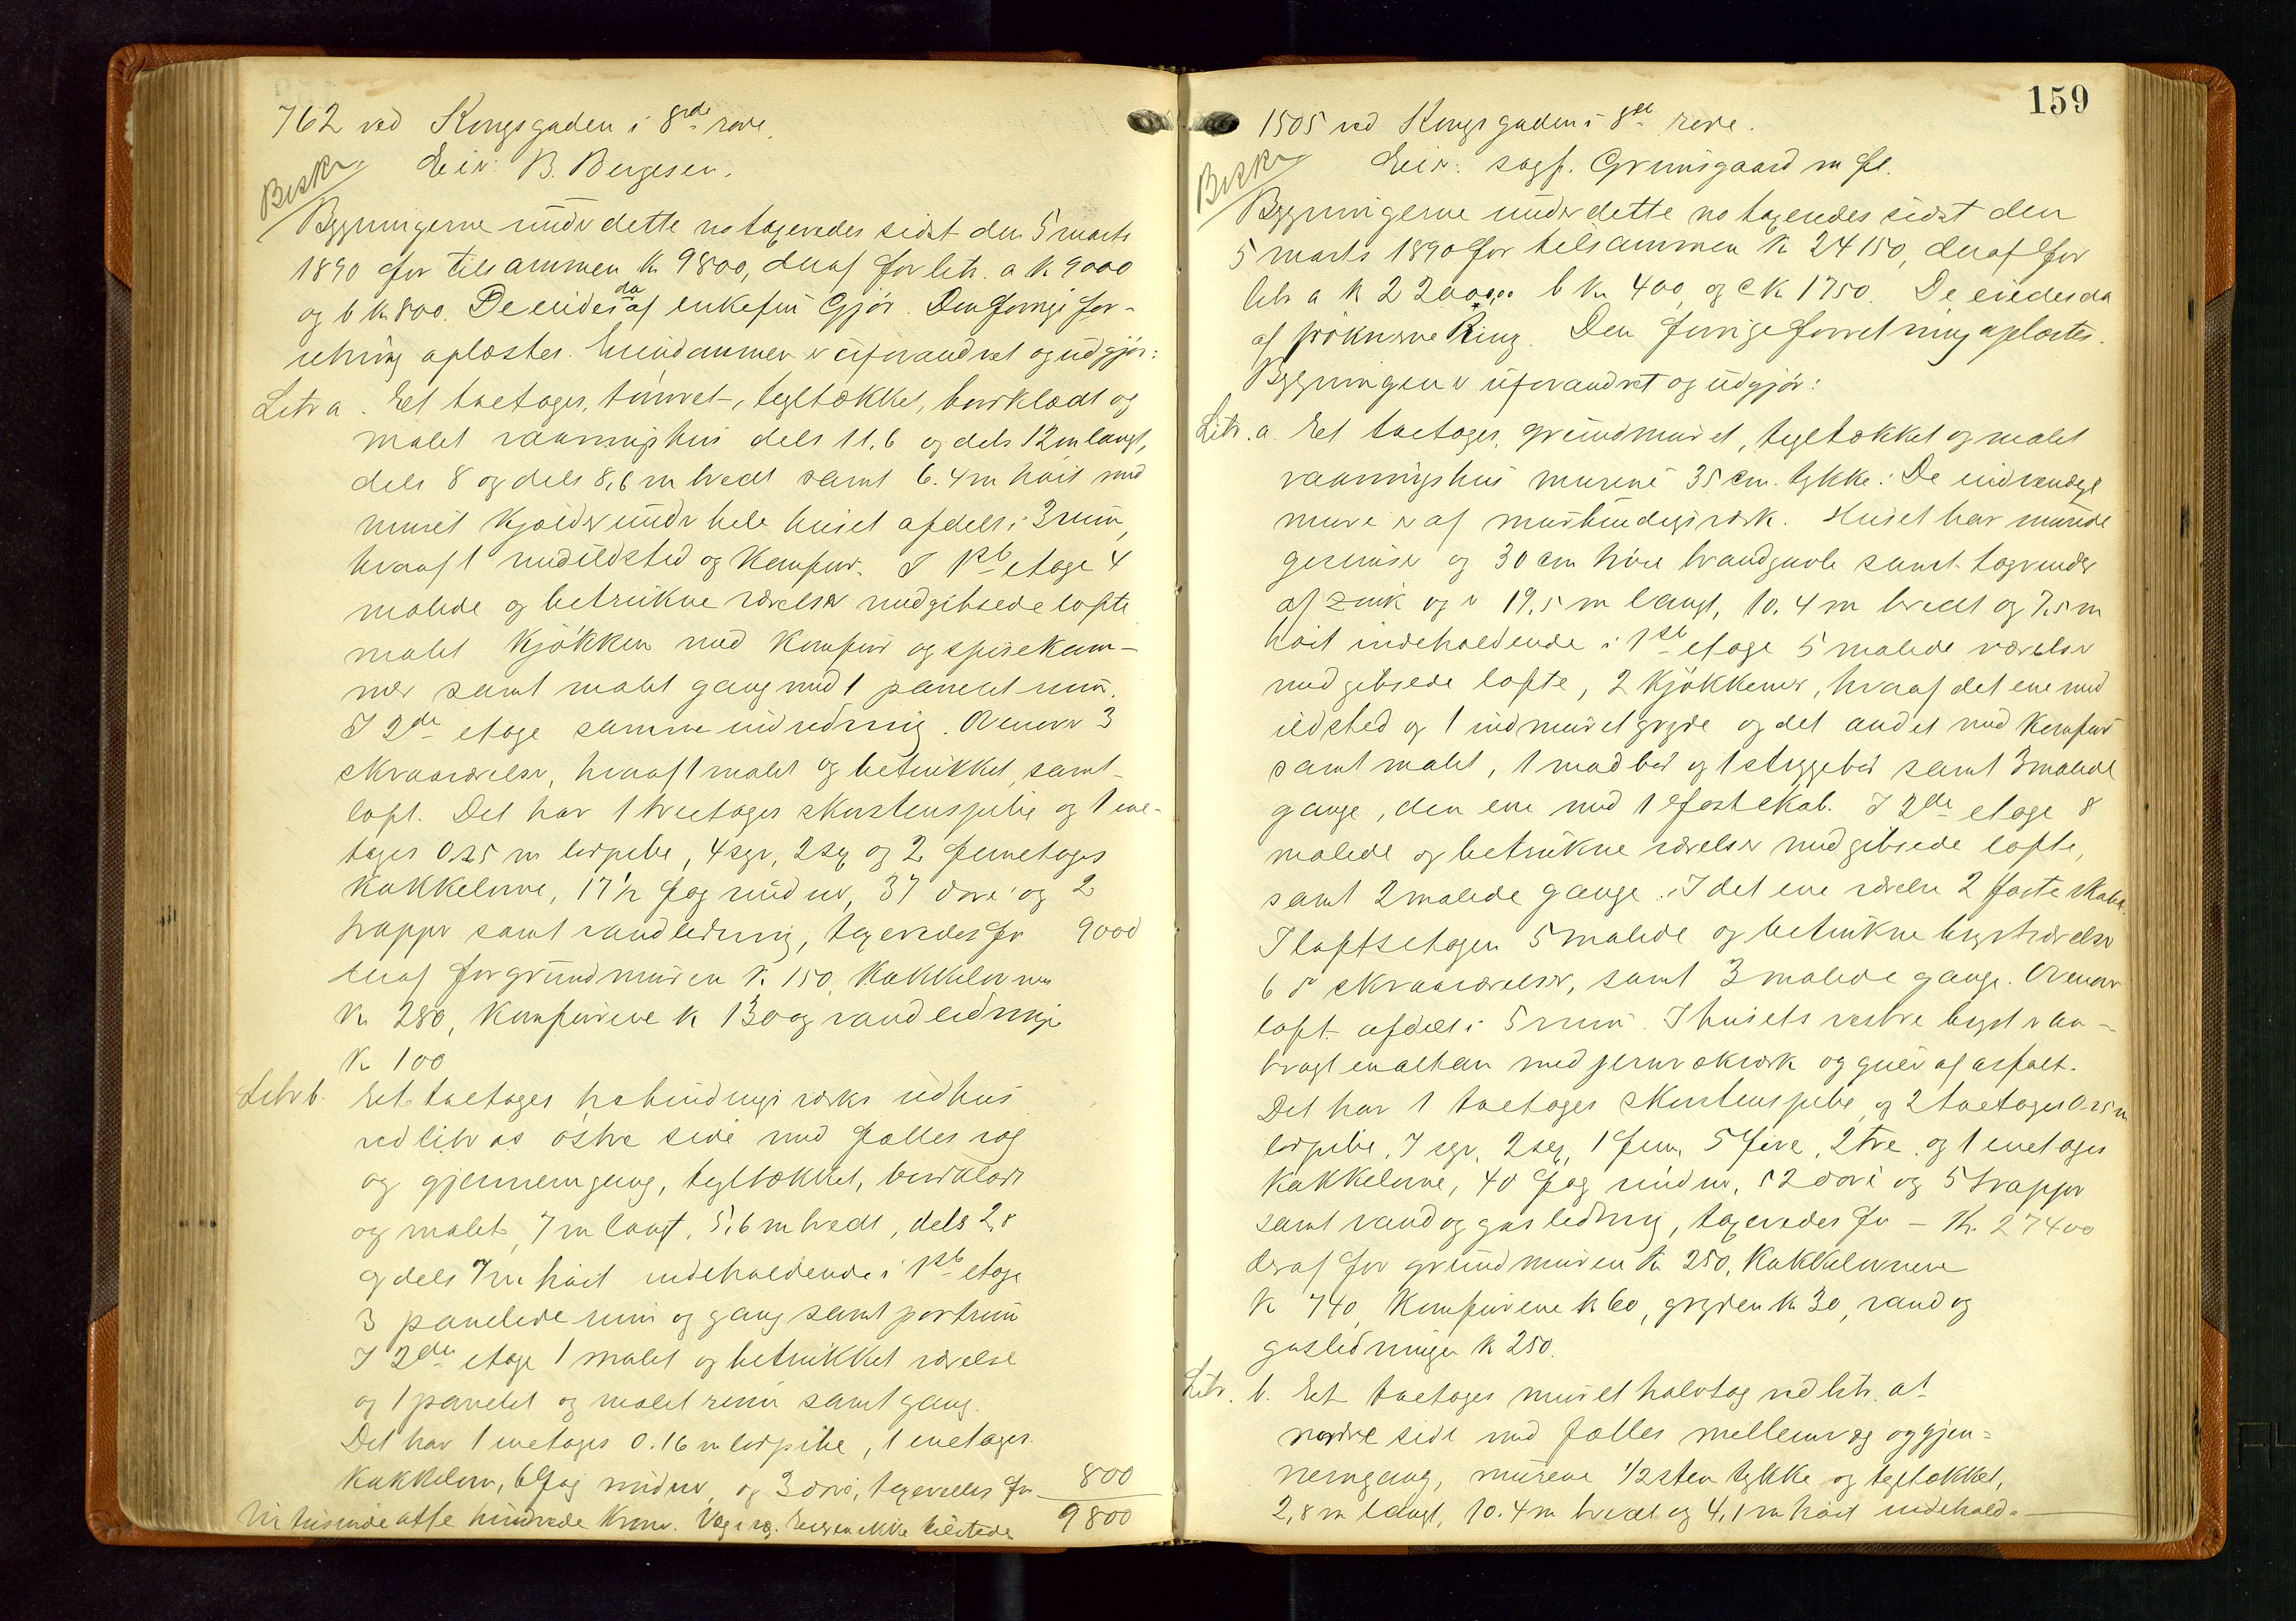 762 ved Kongsgaden i 8de rode.
Eier: B. Bergesen.
Beskr
Bygningerne under dette no taxeredes sidst den 5 marts
1890 for tilsammen k 9800, deraf for litr. a k 9000
og b k 800. De eiedes da af enkefru Gjör. Den forrige for-
retning oplæstes. Eiendommen er uforandret og udgjör:
Litr a. Et toetages, tömret, tegltækket, bordklædt og
malet vaaningshus dels 11,6 og dels 12 m langt,
dels 8 og dels 8,6 m bredt samt 6.4 m höit med
muret kjælder under hele huset afdelt i 3 rum,
hvoraf 1 med ildsted og komfur. I 1ste etage 4
malede og betrukne værelser med gibsede lofte
malet kjökken med komfur og spisekam-
mer samt malet gang med 1 panelet rum.
I 2de etage samme indredning. Ovenover 3
skraaværelser, hvoraf 1 malet og betrukket, samt
loft. Det har 1 treetages skorstenspibe og 1 ene-
tages 0.25 m lerpibe, 4 syv, 2 sex og 2 femetages
kakkelovne, 17 1/2 fag vinduer, 37 döre og 2
trapper samt vandledning, taxeredes for 9000
deraf for grundmuren k. 150, kakkelovnene
k. 280, komfurene k 130 og vandledninge
k 100
Litr b. Et toetages trebindingsværks udhus
ved litr as östre side med fælles væg
og gjennemgang, tegltækket, bordklædt
og malet, 7 m langt, 5,6 m bredt, dels 2,8
og dels 7 m höit indeholdende i 1ste etage
3 panelede rum og gang samt portrum
I 2den etage 1 malet og betrukket værelse
og 1 panelet og malet rum samt gang.
Det har 1 enetages 0.16 m lerpibe, 1 enetages
kakkelovn, 6 fag vinduer og 3 döre, taxeredes for 800
Ni tusinde otte hundrede Kroner. Eieren ikke tilstede 9800
159
1505 ved Kongsgaden i 8de rode.
Eier: sagf. Grimsgaard m fl.
Beskr
Bygningerne under dette no taxeredes sidst den
5 marts 1890 for tilsammen k 24150, deraf for
litr a k 22000,00 b k. 400, og c k 1750. De eiedes da
af fröknerne Ring. Den forrige forretning oplæstes.
Bygningen er uforandret og udgjör:
Litr. a. Et toetages, grundmuret, tegltækket og malet
vaaningshus murene 35 cm. tykke. De indvendige
mure er af murbindigsværk. Huset har murede
gesimser og 30 cm höie brandgavle samt tagrender
af zink og er 19,5 m langt, 10.4 m bredt og 7,5 m
höit indeholdende i 1ste etage 5 malede værelser
med gibsede lofte, 2 kjökkener, hvoraf det ene med
ildsted og 1 indmuret gryde og det andet med komfur
samt malet, 1 madbod og 1 styggebod samt 3 malede
gange, den ene med 1 fast skab. I 2de etage 8
malede og betrukne værelser med gibsede lofte,
samt 2 malede gange. I det ene værelse 2 faste skabe.
I loftsetagen 5 malede og betrukne kvistværelser
6 skraaværelser, samt 3 malede gange. Ovenover
loft afdelt i 5 rum. I husets vestre kvist er an-
bragt en altan med jernrækværk og gulv af asfalt.
Det har 1 toetages skorstenspibe og 2 toetages 0.25 m
lerpibe, 7 syv, 2 sex, 1 fem, 5 fire, 2 tre og 1 enetages
kakkelovne, 40 fag vinduer, 52 döre og 5 trapper
samt vand og gasledning, taxeredes for - Kr. 27400
deraf for grundmuren k 250, kakkelovnene
k 740, komfurene k 60, gryden k 30, vand og
gasledninger k 250.
Litr. b. Et toetages muret halvtag ved litr. as
nordre side med fælles mellemvæg og gjen=
nemgang, murene 1/2 sten tykke og tegltækket,
2,8 m langt, 10.4 m bredt og 4,1 m höit indehold=